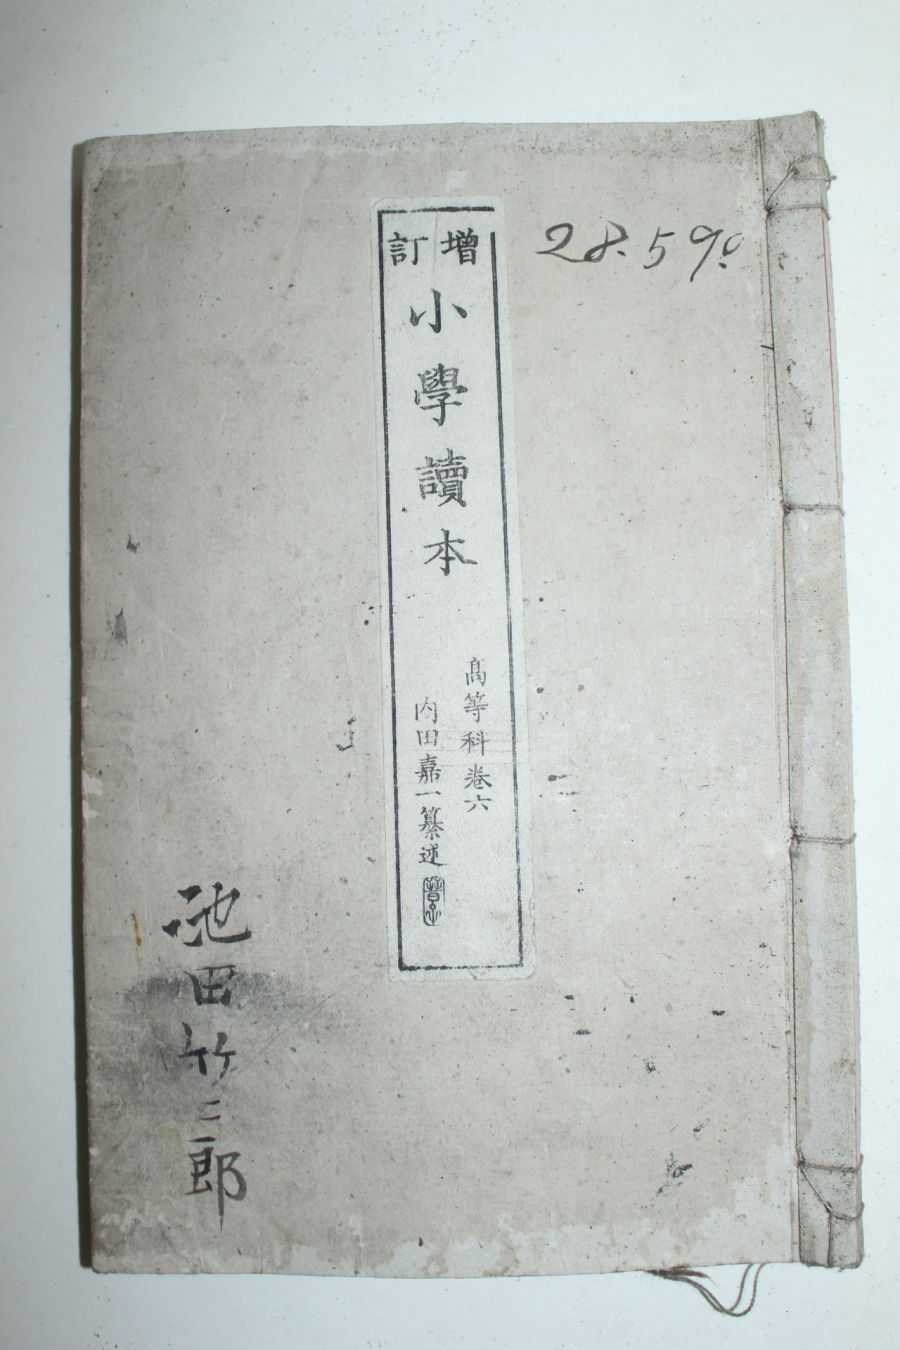 28.59.
增訂
小學讀本
高等科卷六
内田嘉一纂述
池田竹二郎